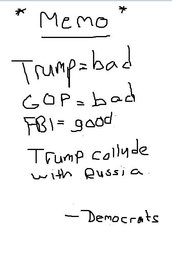 * Memo *
Trump=bad
GOP=bad
FBI=good
Trump collyde
with Russia
—Democrats